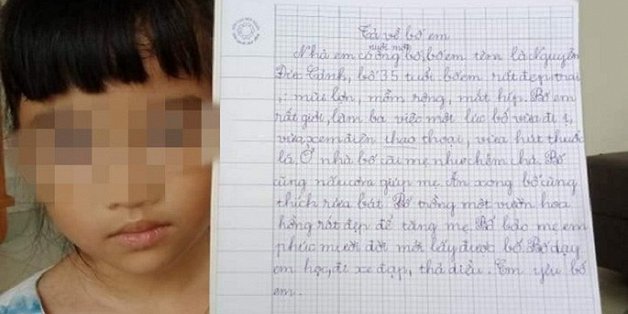 Tả về bố em
Nhà em có nuôi một ông bố, bố em tên là Nguyễn
Đức Cảnh, bố 35 tuổi bố em rất đẹp trai
: mũi lớn, mồm rộng, mắt híp. Bố em
rất giỏi, làm ba việc một lúc bố vừa đi ị,
vừa xem điện thạo thoại, vừa hút thuốc
lá. Ở nhà bố cãi mẹ như chém chả. Bố
cũng nấu cơm giúp mẹ. Ăn xong bố cũng
thích rửa bát. Bố trồng một vườn hoa
hồng rất đẹp để tặng mẹ. Bố bảo mẹ em
phúc mười đời mới lấy được bố. Bố dạy
em học, đi xe đạp, thả diều. Em yêu bố
em.